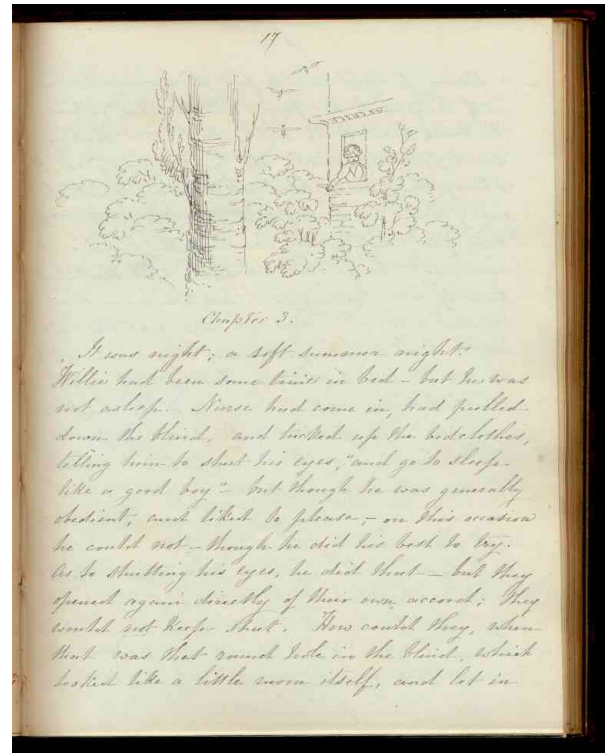 17
Chapter 3.
It was night; a soft summer night.
Willie had been some time in bed – but he was
not asleep. Nurse had come in, had pulled
down the blind, and tucked up the bedclothes,
telling him to shut his eyes, "and go to sleep
like a good boy" – but though he was generally
obedient, and liked to please, – on this occasion
he could not – though he did his best to try.
As to shutting his eyes, he did that – but they
opened again directly of their own accord; they
would not keep shut. How could they, when
that was that round hole in the blind, which
looked like a little moon itself, and let in